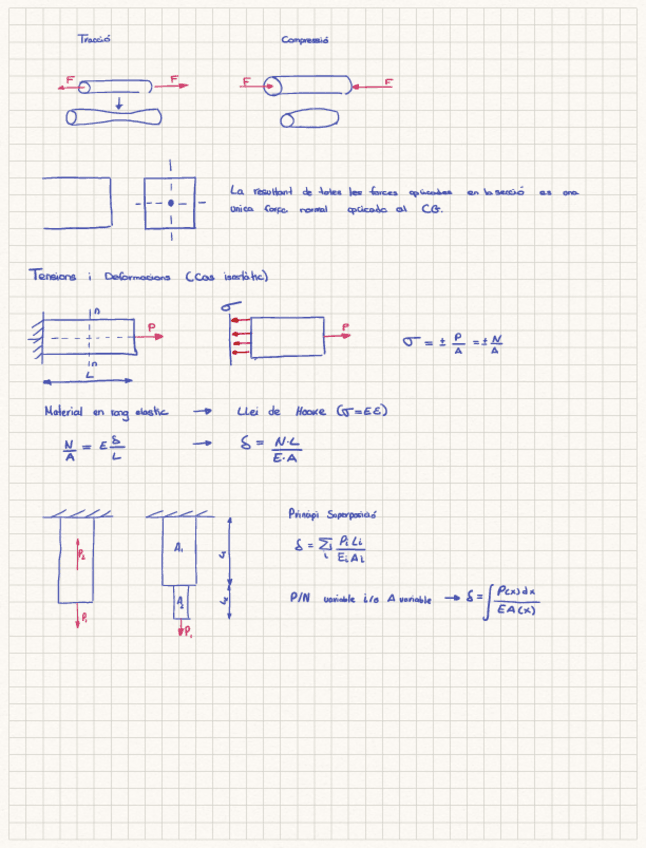 Tracció
Compressió
F F
F F
La resultant de totes les forces aplicades en la secció es una
unica força normal aplicada al CG.
Tensions i Deformacions (Cas isostàtic)
n
P
n
L
σ
P
σ = ± P/A = ± N/A
Material en rang elastic → Llei de Hooke (σ=EE)
N/A = E δ/L → δ = N·L/E·A
Principi Superposició
P₂
P₁
A₁
A₂
P₁
L₂
δ = Σi PiLi/EiAi
P/N variable i/o A variable → δ = ∫ P(x)dx/EA(x)